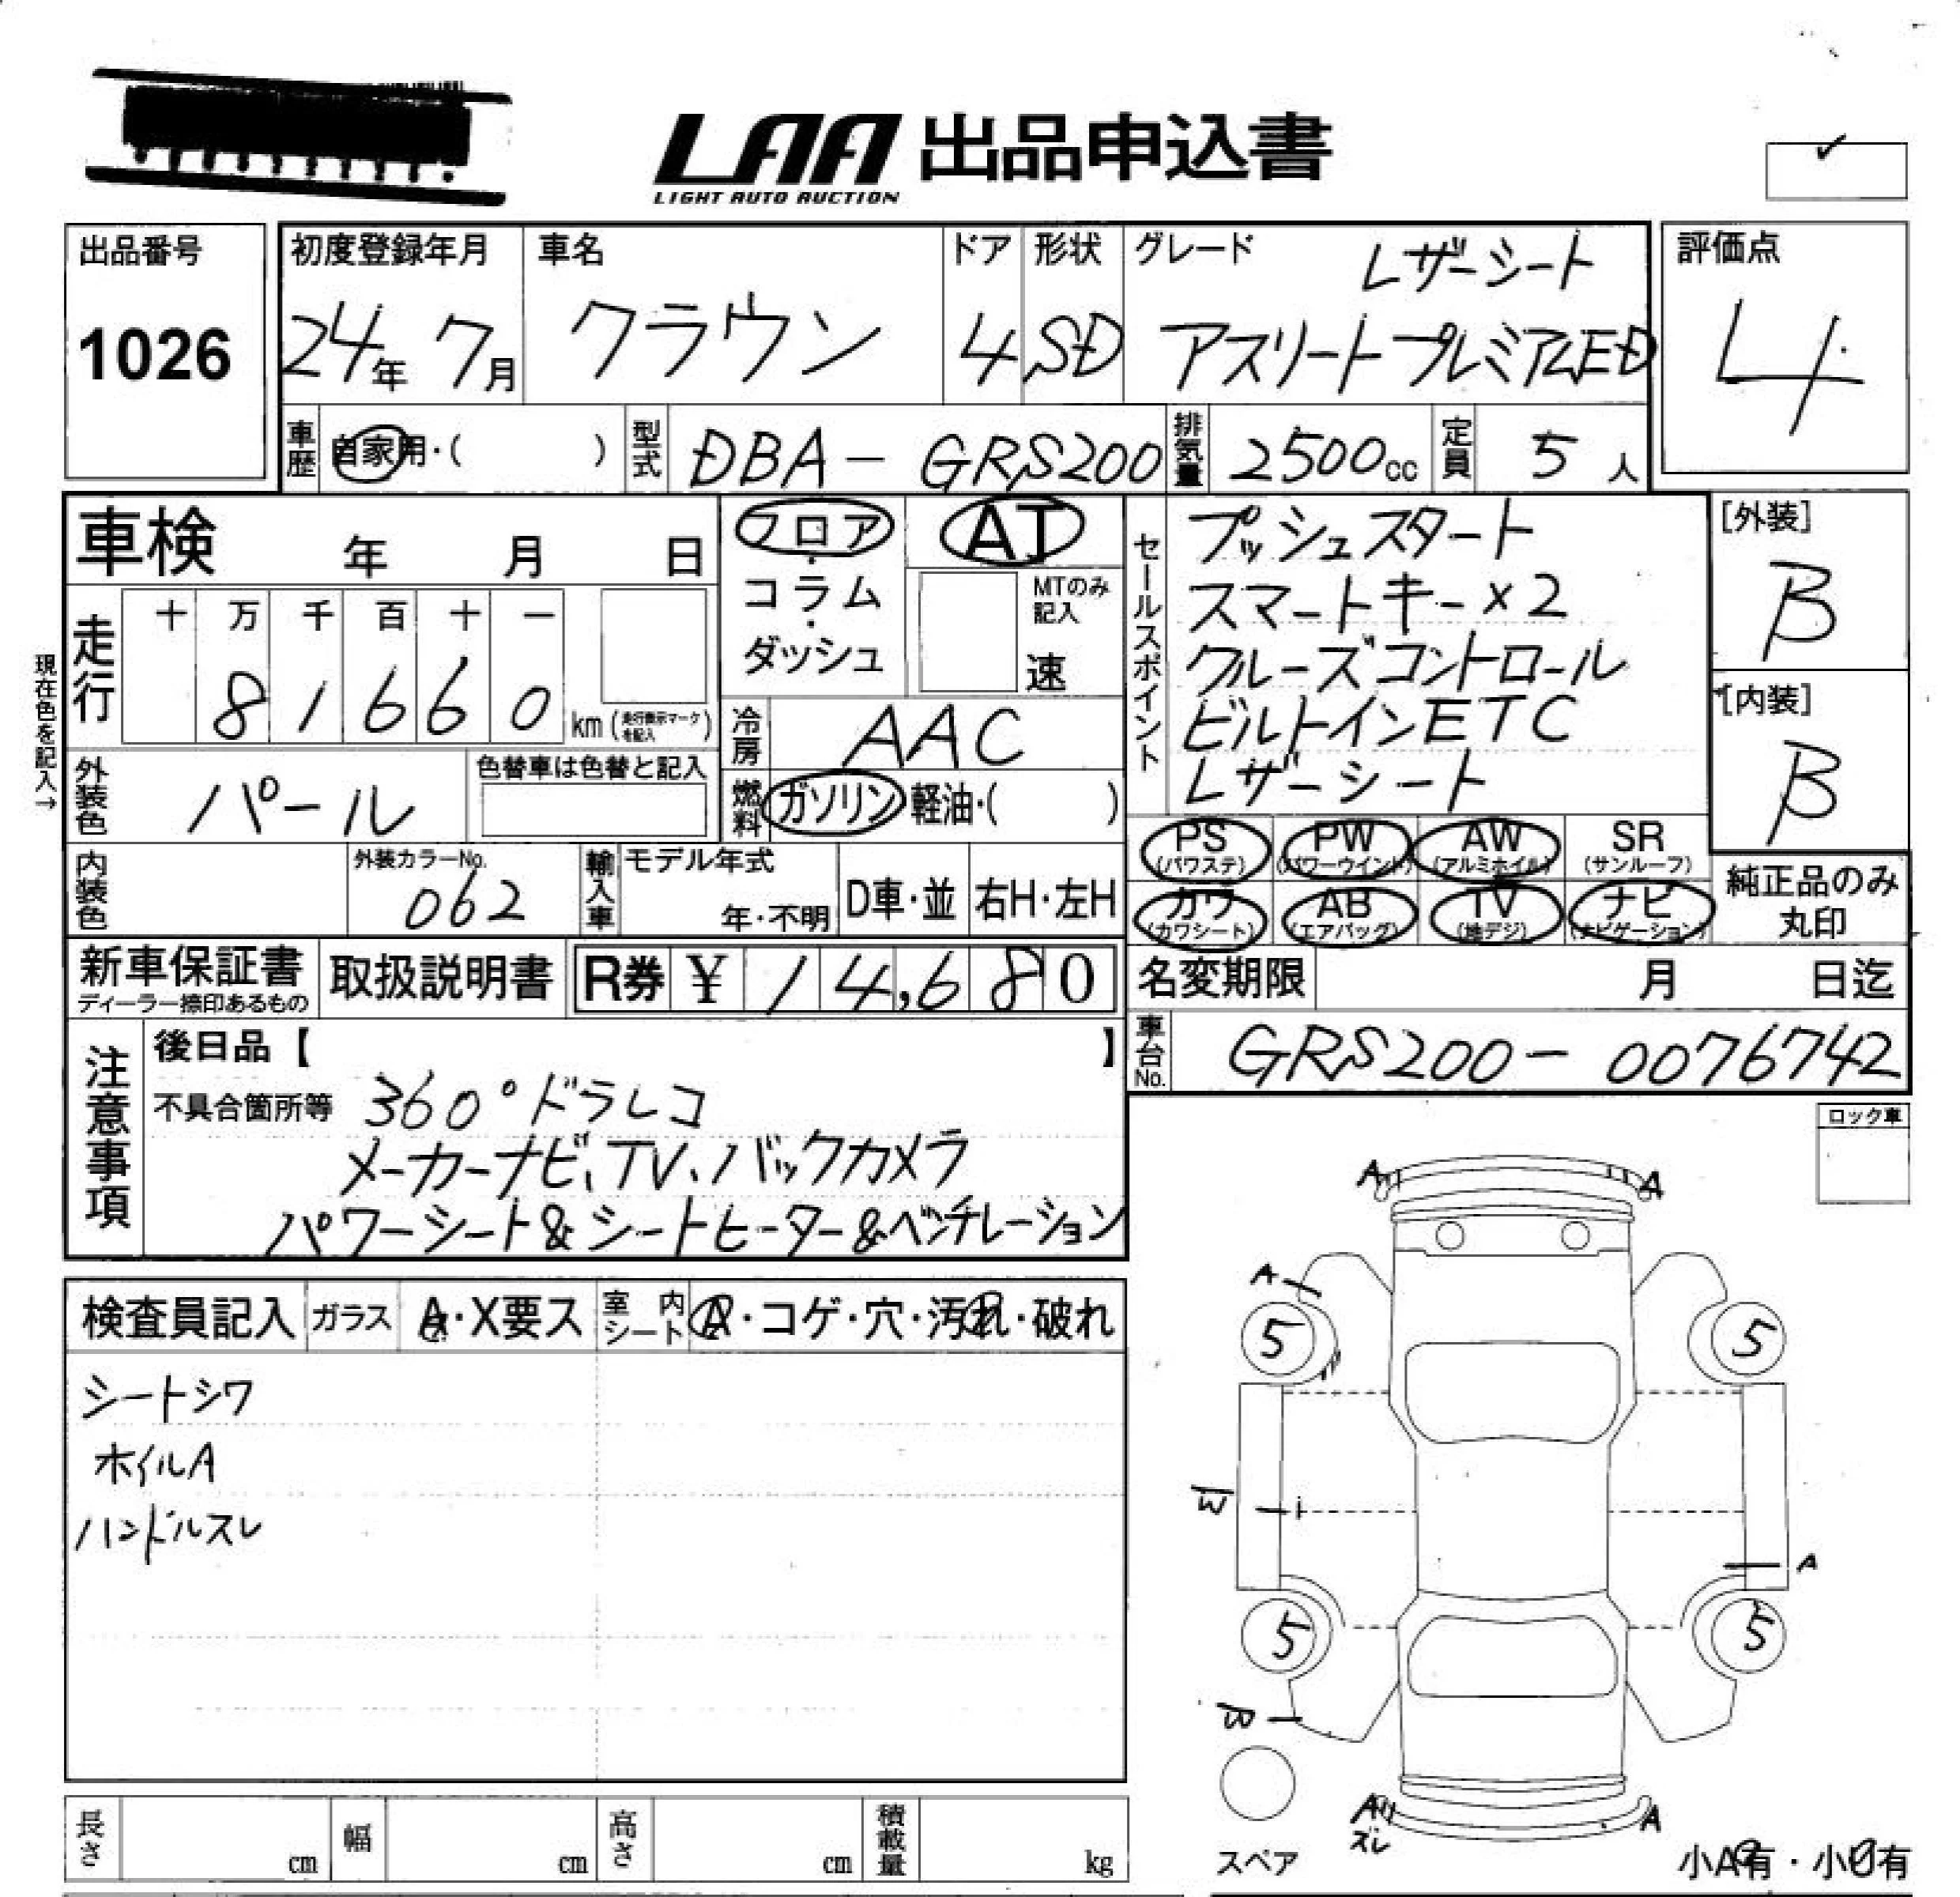 LAA 出品申込書
LIGHT AUTO AUCTION
出品番号
1026
初度登録年月
24年 7月
車名
クラウン
ドア
4
形状
SD
グレード
レザーシート
アスリートプレミアムED
評価点
4
車歴 自家用・( )
型式 DBA-GRS200
排気量 2500cc
定員 5人
車検 年 月 日
フロア・コラム・ダッシュ
AT
MTのみ記入
速
現在色を記入→
走行
十 万 千 百 十 一
8 1 6 6 0 km (走行表示マークを記入)
冷房 AAC
燃料 ガソリン 軽油・( )
外装色 パール
色替車は色替と記入
内装色
外装カラーNo.
062
輸入車 モデル年式
年・不明
D車・並 右H・左H
セールスポイント
プッシュスタート
スマートキー×2
クルーズコントロール
ビルトインETC
レザーシート
[外装]
B
[内装]
B
PS (パワステ) PW (パワーウインド) AW (アルミホイル) SR (サンルーフ)
カワ (カワシート) AB (エアバッグ) TV (地デジ) ナビ (ナビゲーション)
純正品のみ
丸印
新車保証書
ディーラー捺印あるもの
取扱説明書
R券 ¥ 14,680
名変期限 月 日迄
車台No. GRS200-0076742
注意事項
後日品【 】
不具合箇所等 360°ドラレコ
メーカーナビ、TV、バックカメラ
パワーシート&シートヒーター&ベンチレーション
ロック車
検査員記入 ガラス A・X要ス 室内シート ・コゲ・穴・汚れ・破れ
シートシワ
ホイルA
ハンドルスレ
A A
A
5 5
W
A
5 5
B
A
ズレ
A
スペア
小A有・小U有
長さ cm
幅 cm
高さ cm
積載量 kg